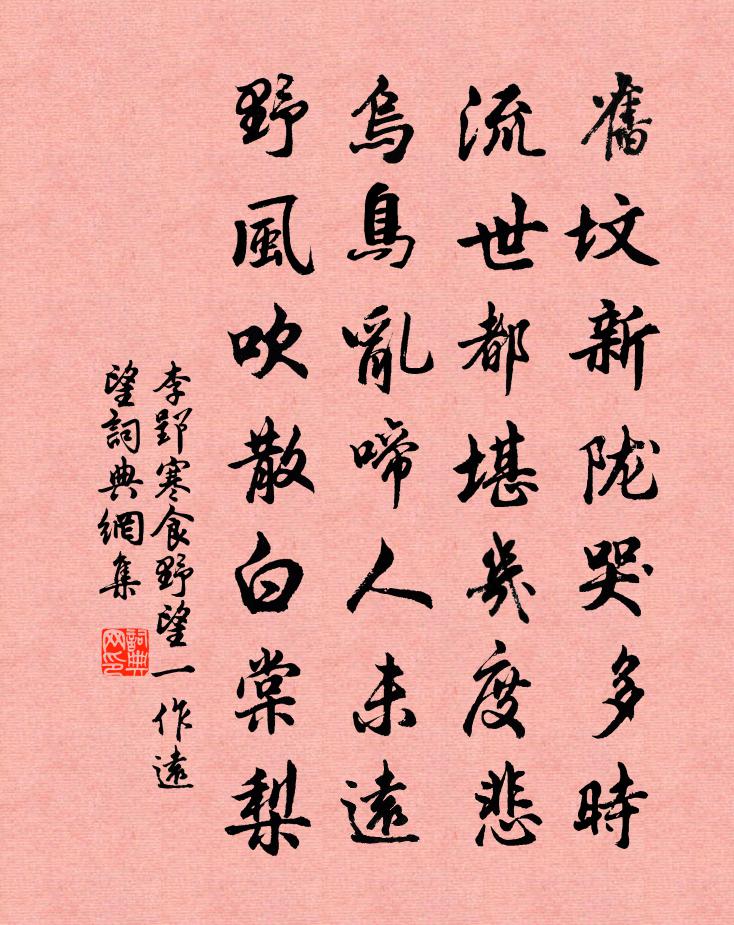 舊坟新陇哭多時
流世都堪幾度悲
烏鳥亂啼人未遠
野風吹散白棠梨
李郢寒食野望一作遠
望詞典網集
詞典网印